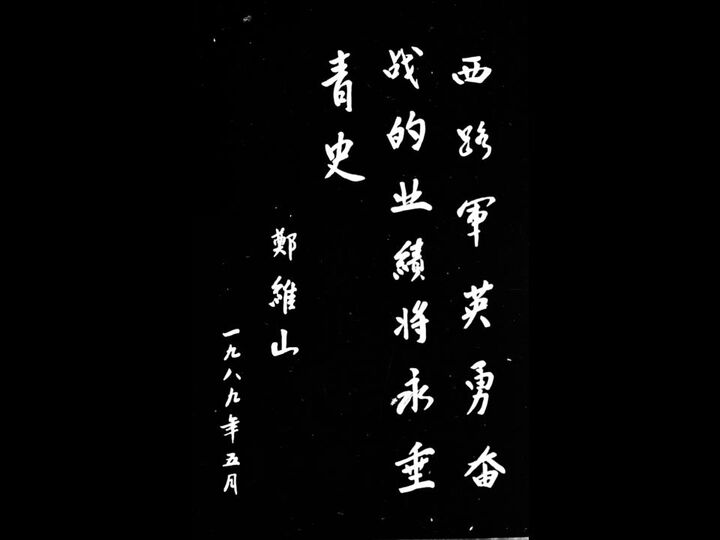 西路軍英勇奋
战的业績将永垂
青史
鄭維山
一九八九年五月